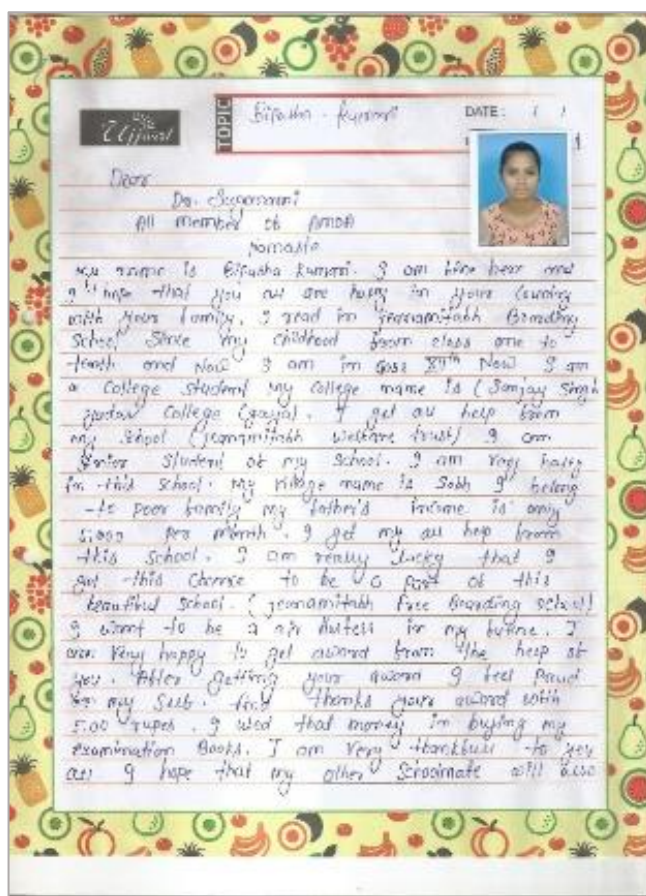 Ujjwal
TOPIC
Bipasha - Kumari
DATE : / /
Dear
Dr. Sugawami
All member of AMDA
Namaste
my name is Bipasha Kumari. I am fine hear and
I hope that you all are happy in your Country
with your family. I read in jeenamitabh Boarding
School Since my childhood from class one to
tenth and Now I am in class XIth Now I am
a College Student my College name is (Sanjay Singh
yadav College (gaya). I get all help from
my School (jeenamitabh welfare trust) I am
Senior Student of my School. I am very happy
in this School. my village name is Sobh I belong
to poor family my father's income is only
5.000 per month. I get my all help from
this School. I am really lucky that I
got this Chance to be a part of this
beautiful School. (jeenamitabh Free Boarding School)
I want to be a air Hostess in my future. I
am very happy to get award from the help of
you. After getting your award I feel Proud
for my Self. thanks your award with
5.00 rupes. I used that money in buying my
examination Books. I am very thankfull to you
all I hope that my other Schoolmate will also